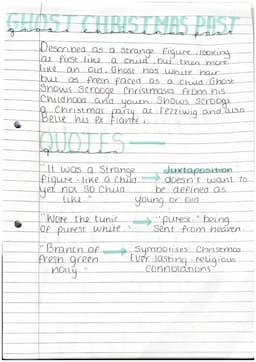 GHOST CHRISTMAS PAST
Described as a strange figure, looking
at first like a child, but then more
like an old. Ghost has white hair
but as fresh faced as a child. Ghost
shows Scrooge Christmases from his
childhood and youth. Shows Scrooge
a Christmas party at Fezziwig and also
Belle his ex fiante.
QUOTES
"It was a strange → Juxtaposition
figure-like a child → doesn't want to
yet not so child be defined as
like." young or old
"Wore the tunic → "purest" being
of purest white." Sent from heaven.
"Branch of → Symbolises Christmas
fresh green Ever lasting. religious
holly." connotations